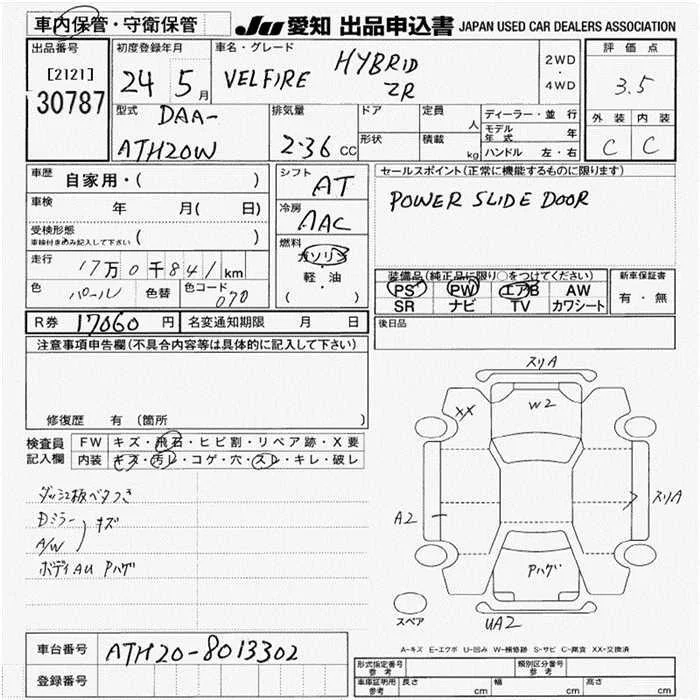 車内保管・守衛保管
JU 愛知 出品申込書 JAPAN USED CAR DEALERS ASSOCIATION
出品番号
[2121]
30787
初度登録年月
24 5月
車名・グレード
VELFIRE HYBRID ZR
2WD
・
4WD
評価点
3.5
外装 内装
C C
型式
DAA-
ATH20W
排気量
2.36 CC
ドア
形状
定員
人
積載
kg
ディーラー・並行
モデル年式 年
ハンドル 左・右
車歴 自家用・( )
車検 年 月( 日)
受検形態
車検付きのみ記入して下さい ( )
走行 17万0千841km
色 パール 色替 色コード 070
シフト
AT
冷房
AAC
燃料
ガソリン
軽・油
( )
セールスポイント(正常に機能するものに限ります)
POWER SLIDE DOOR
装備品(純正品に限り○をつけてください)
PS PW エアB AW
SR ナビ TV カワシート
新車保証書
有・無
R券 17060円 名変通知期限 月 日
後日品
注意事項申告欄(不具合内容等は具体的に記入して下さい)
修復歴 有 (箇所 )
検査員
記入欄
FW キズ・飛石・ヒビ割・リペア跡・X要
内装 キズ・汚レ・コゲ・穴・スレ・キレ・破レ
ダッシュ板ベタつき
Dミラー
A/W
キズ
ボディAU Pハゲ
スリA
XX
W2
A2
スリA
Pハゲ
UA2
スペア
A-キズ E-エクボ U-凹み W-補修跡 S-サビ C-腐食 XX-交換済
車台番号 ATH20-8013302
登録番号
形式指定番号
参考
類別区分番号
参考
車庫証明用
参考
長さ cm 幅 cm 高さ cm